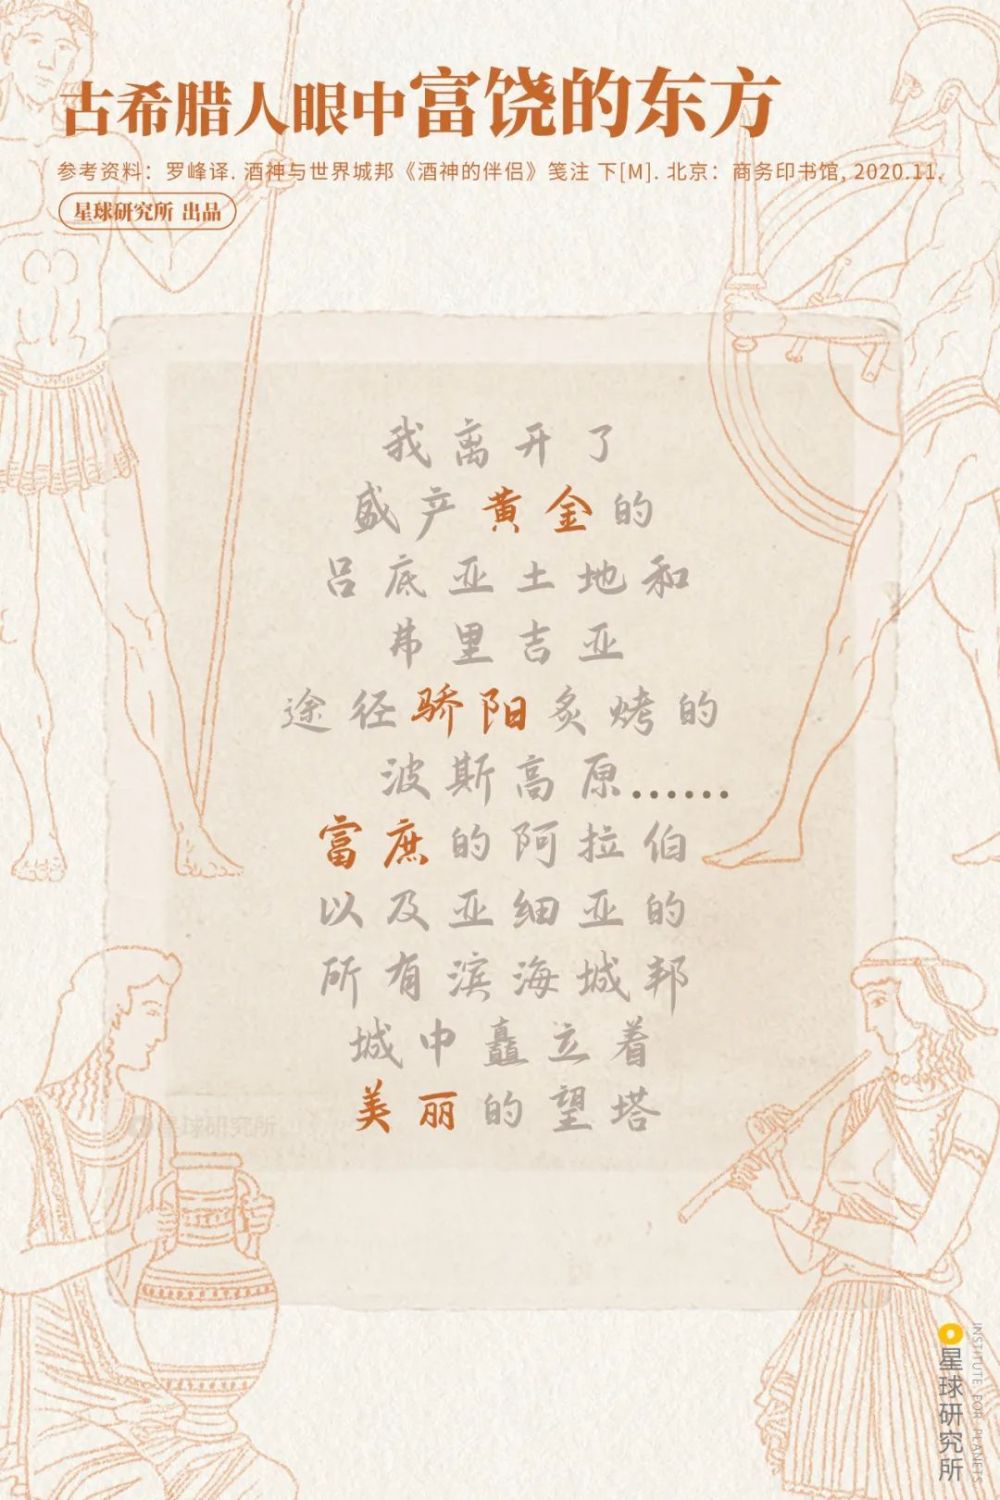 古希腊人眼中富饶的东方
参考资料：罗峰译. 酒神与世界城邦《酒神的伴侣》笺注 下[M]. 北京：商务印书馆, 2020.11.
星球研究所 出品
我离开了
盛产黄金的
吕底亚土地和
弗里吉亚
途径骄阳炙烤的
波斯高原......
富庶的阿拉伯
以及亚细亚的
所有滨海城邦
城中矗立着
美丽的望塔
星球研究所
星球研究所
INSTITUTE FOR PLANETS